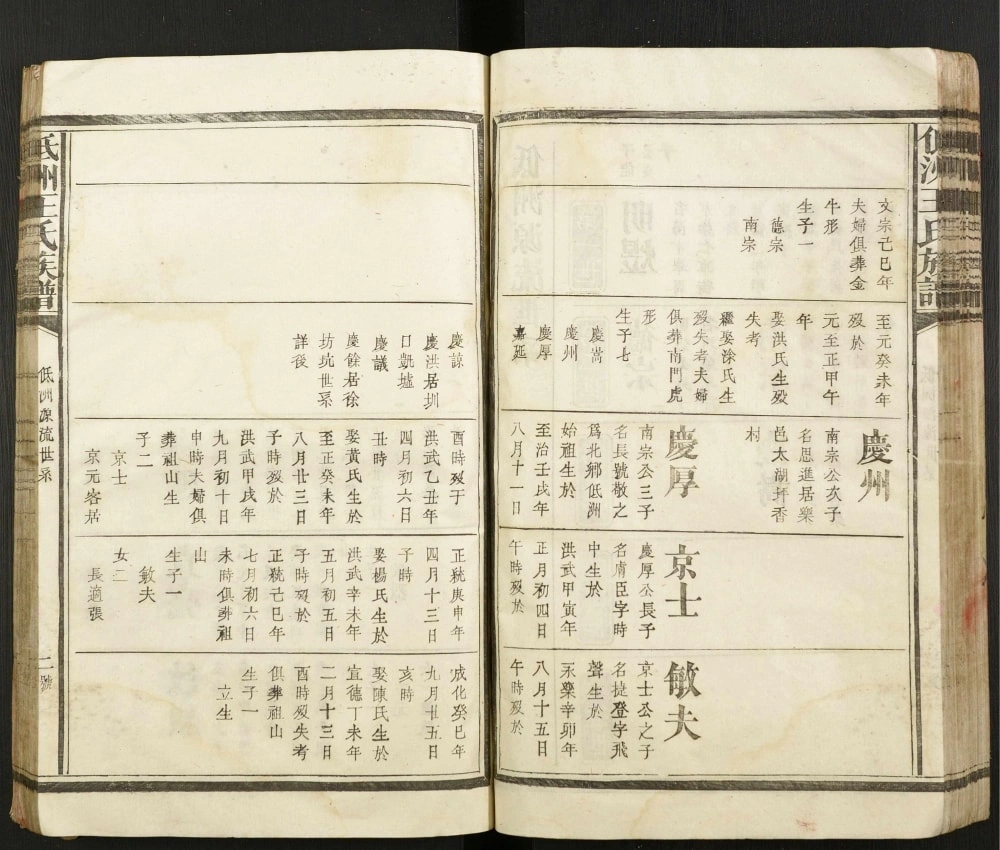 低洲王氏族譜
文宗己巳年
夫婦俱葬金
牛形
生子一
德宗
南宗
至元癸未年
歿於
元至正甲午
年
娶洪氏生歿
失考
繼娶涂氏生
歿失考夫婦
俱葬南門虎
形
生子七
慶嵩
慶州
慶厚
嘉延
慶州
南宗公次子
名恩進居樂
邑太湖坪香
村
慶厚
南宗公三子
名長號敬之
爲北鄉低洲
始祖生於
至治壬戌年
八月十一日
京士
慶厚公長子
名膚臣字時
中生於
洪武甲寅年
正月初四日
午時歿於
敏夫
京士公之子
名捷登字飛
聲生於
永樂辛卯年
八月十五日
午時歿於
慶諒
慶洪居圳
口凱墟
慶議
慶餘居徐
坊坑世系
詳後
酉時歿于
洪武乙丑年
四月初六日
丑時
娶黃氏生於
至正癸未年
八月廿三日
子時歿於
洪武甲戌年
九月初十日
申時夫婦俱
葬祖山生
子二
京士
京元客居
正統庚申年
四月十三日
子時
娶楊氏生於
洪武辛未年
五月初五日
子時歿於
正統己巳年
七月初六日
未時俱葬祖
山
生子一
敏夫
女二
長適張
成化癸巳年
九月廿五日
亥時
娶陳氏生於
宣德丁未年
二月十三日
酉時歿失考
俱葬祖山
生子一
立生
低洲王氏族譜
低洲源流世系
二號